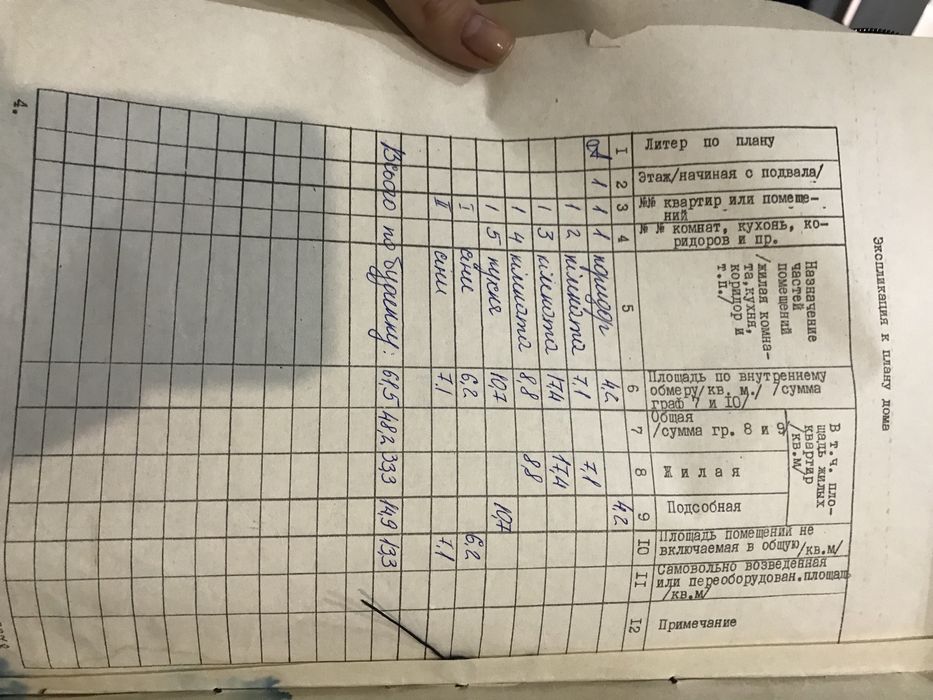 Экспликация к плану дома
Литер по плану
Этаж/начиная с подвала/
№№ квартир или помеще-
ний
№ № комнат, кухонь, ко-
ридоров и пр.
Назначение
частей
помещений
/жилая комна-
та,кухня,
коридор и
т.п./
Площадь по внутреннему
обмеру/кв. м./ /сумма
граф 7 и 10/
В т.ч. пло-
щадь жилых
квартир
/кв.м/
Общая
/сумма гр. 8 и 9/
Жилая
Подсобная
Площадь помещений не
включаемая в общую/кв.м/
Самовольно возведенная
или переоборудован.площадь
/кв.м/
Примечание
I 2 3 4 5 6 7 8 9 I0 II I2
1 1 1 коридор 4,2 4,2
1 2 кімната 7,1 7,1
1 3 кімната 17,4 17,4
1 4 кімната 8,8 8,8
1 5 кухня 10,7 10,7
I сіни 6,2 6,2
II сіни 7,1 7,1
Всього по будинку: 61,5 48,2 33,3 14,9 13,3
4.